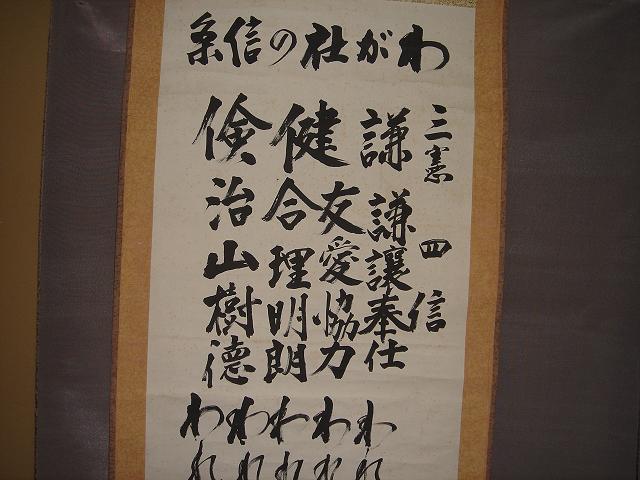 わが社の信条
三憲
四信
謙
健
倹
謙讓奉仕
友愛協力
合理明朗
治山樹徳
われ
われ
われ
われ
われ